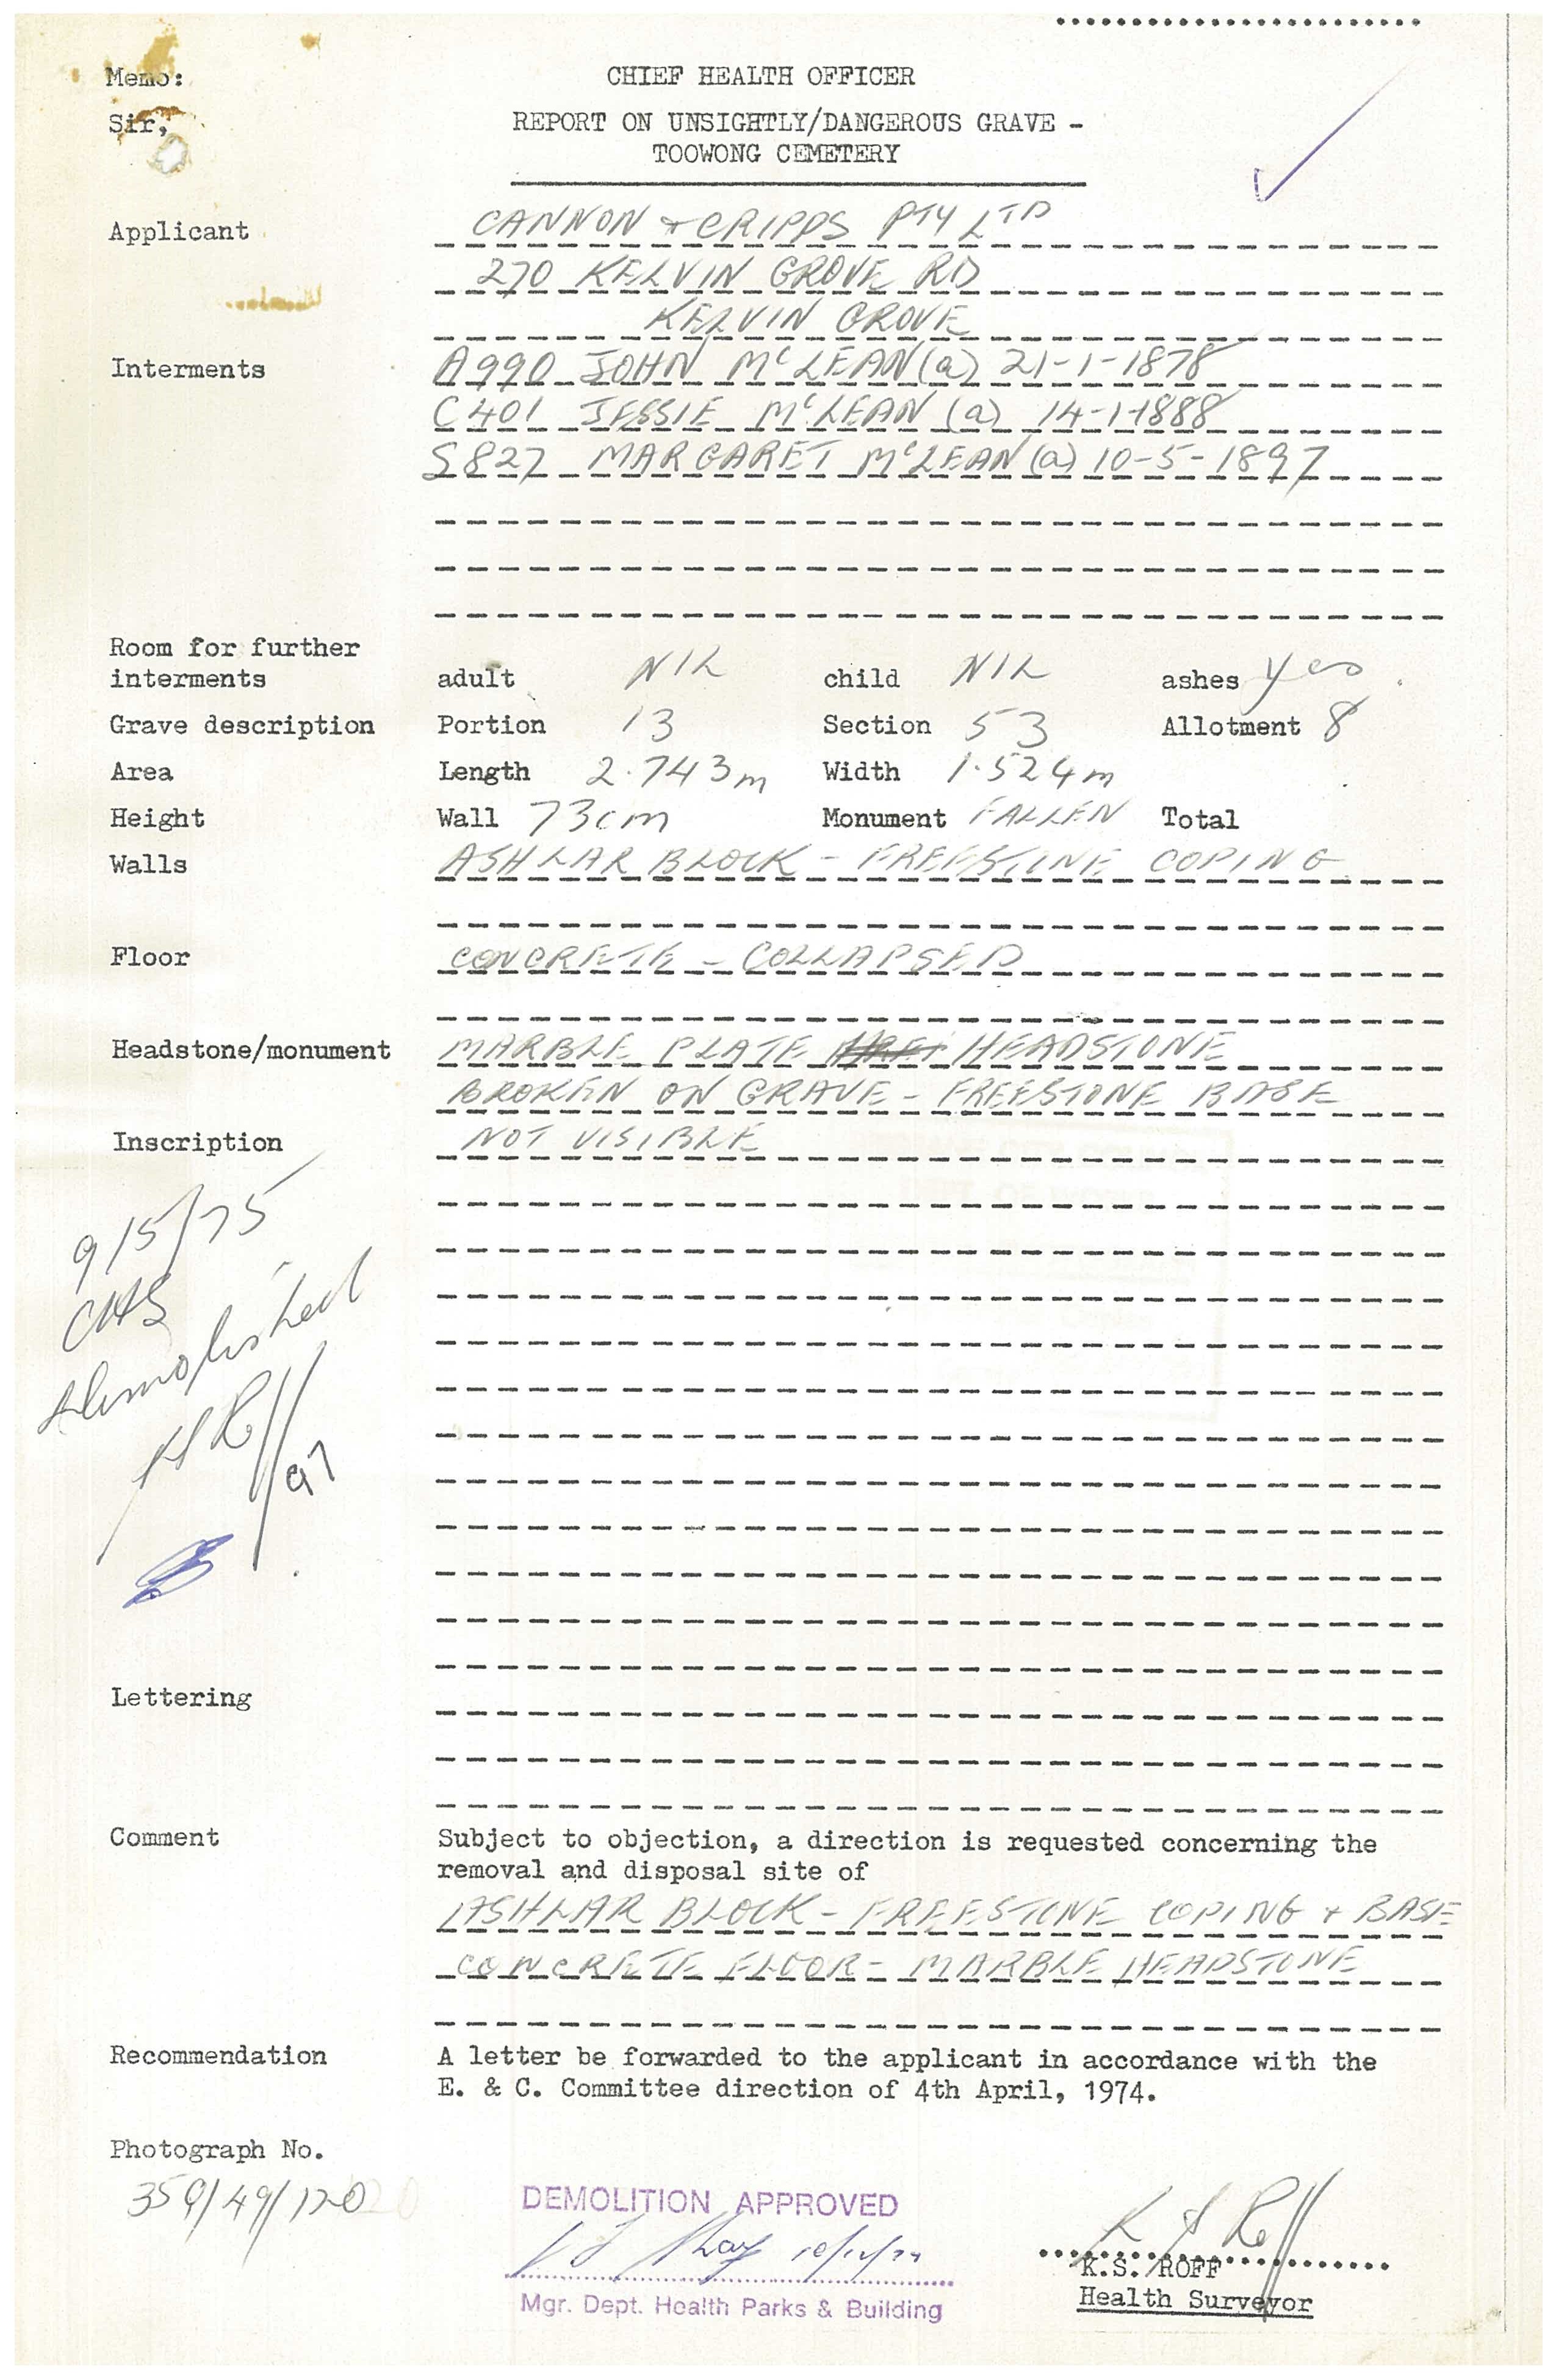 Memo:
CHIEF HEALTH OFFICER
Sir,
REPORT ON UNSIGHTLY/DANGEROUS GRAVE -
TOOWONG CEMETERY
Applicant CANNON & CRIPPS PTY LTD
270 KELVIN GROVE RD
KELVIN GROVE
Interments A990 JOHN McLEAN (a) 21-1-1878
C401 JESSIE McLEAN (a) 14-1-1888
S827 MARGARET McLEAN (a) 10-5-1897
Room for further
interments adult NIL child NIL ashes yes
Grave description Portion 13 Section 53 Allotment 8
Area Length 2.743m Width 1.524m
Height Wall 73cm Monument FALLEN Total
Walls ASHLAR BLOCK - FREESTONE COPING
Floor CONCRETE - COLLAPSED
Headstone/monument MARBLE PLATE HEADSTONE
BROKEN ON GRAVE - FREESTONE BASE
Inscription NOT VISIBLE
9/5/75
CHS
Demolished
97
Lettering
Comment Subject to objection, a direction is requested concerning the
removal and disposal site of
ASHLAR BLOCK - FREESTONE COPING + BASE
CONCRETE FLOOR - MARBLE HEADSTONE
Recommendation A letter be forwarded to the applicant in accordance with the
E. & C. Committee direction of 4th April, 1974.
Photograph No.
359/49/120
DEMOLITION APPROVED
K S Roff
K.S. ROFF
Mgr. Dept. Health Parks & Building
Health Surveyor